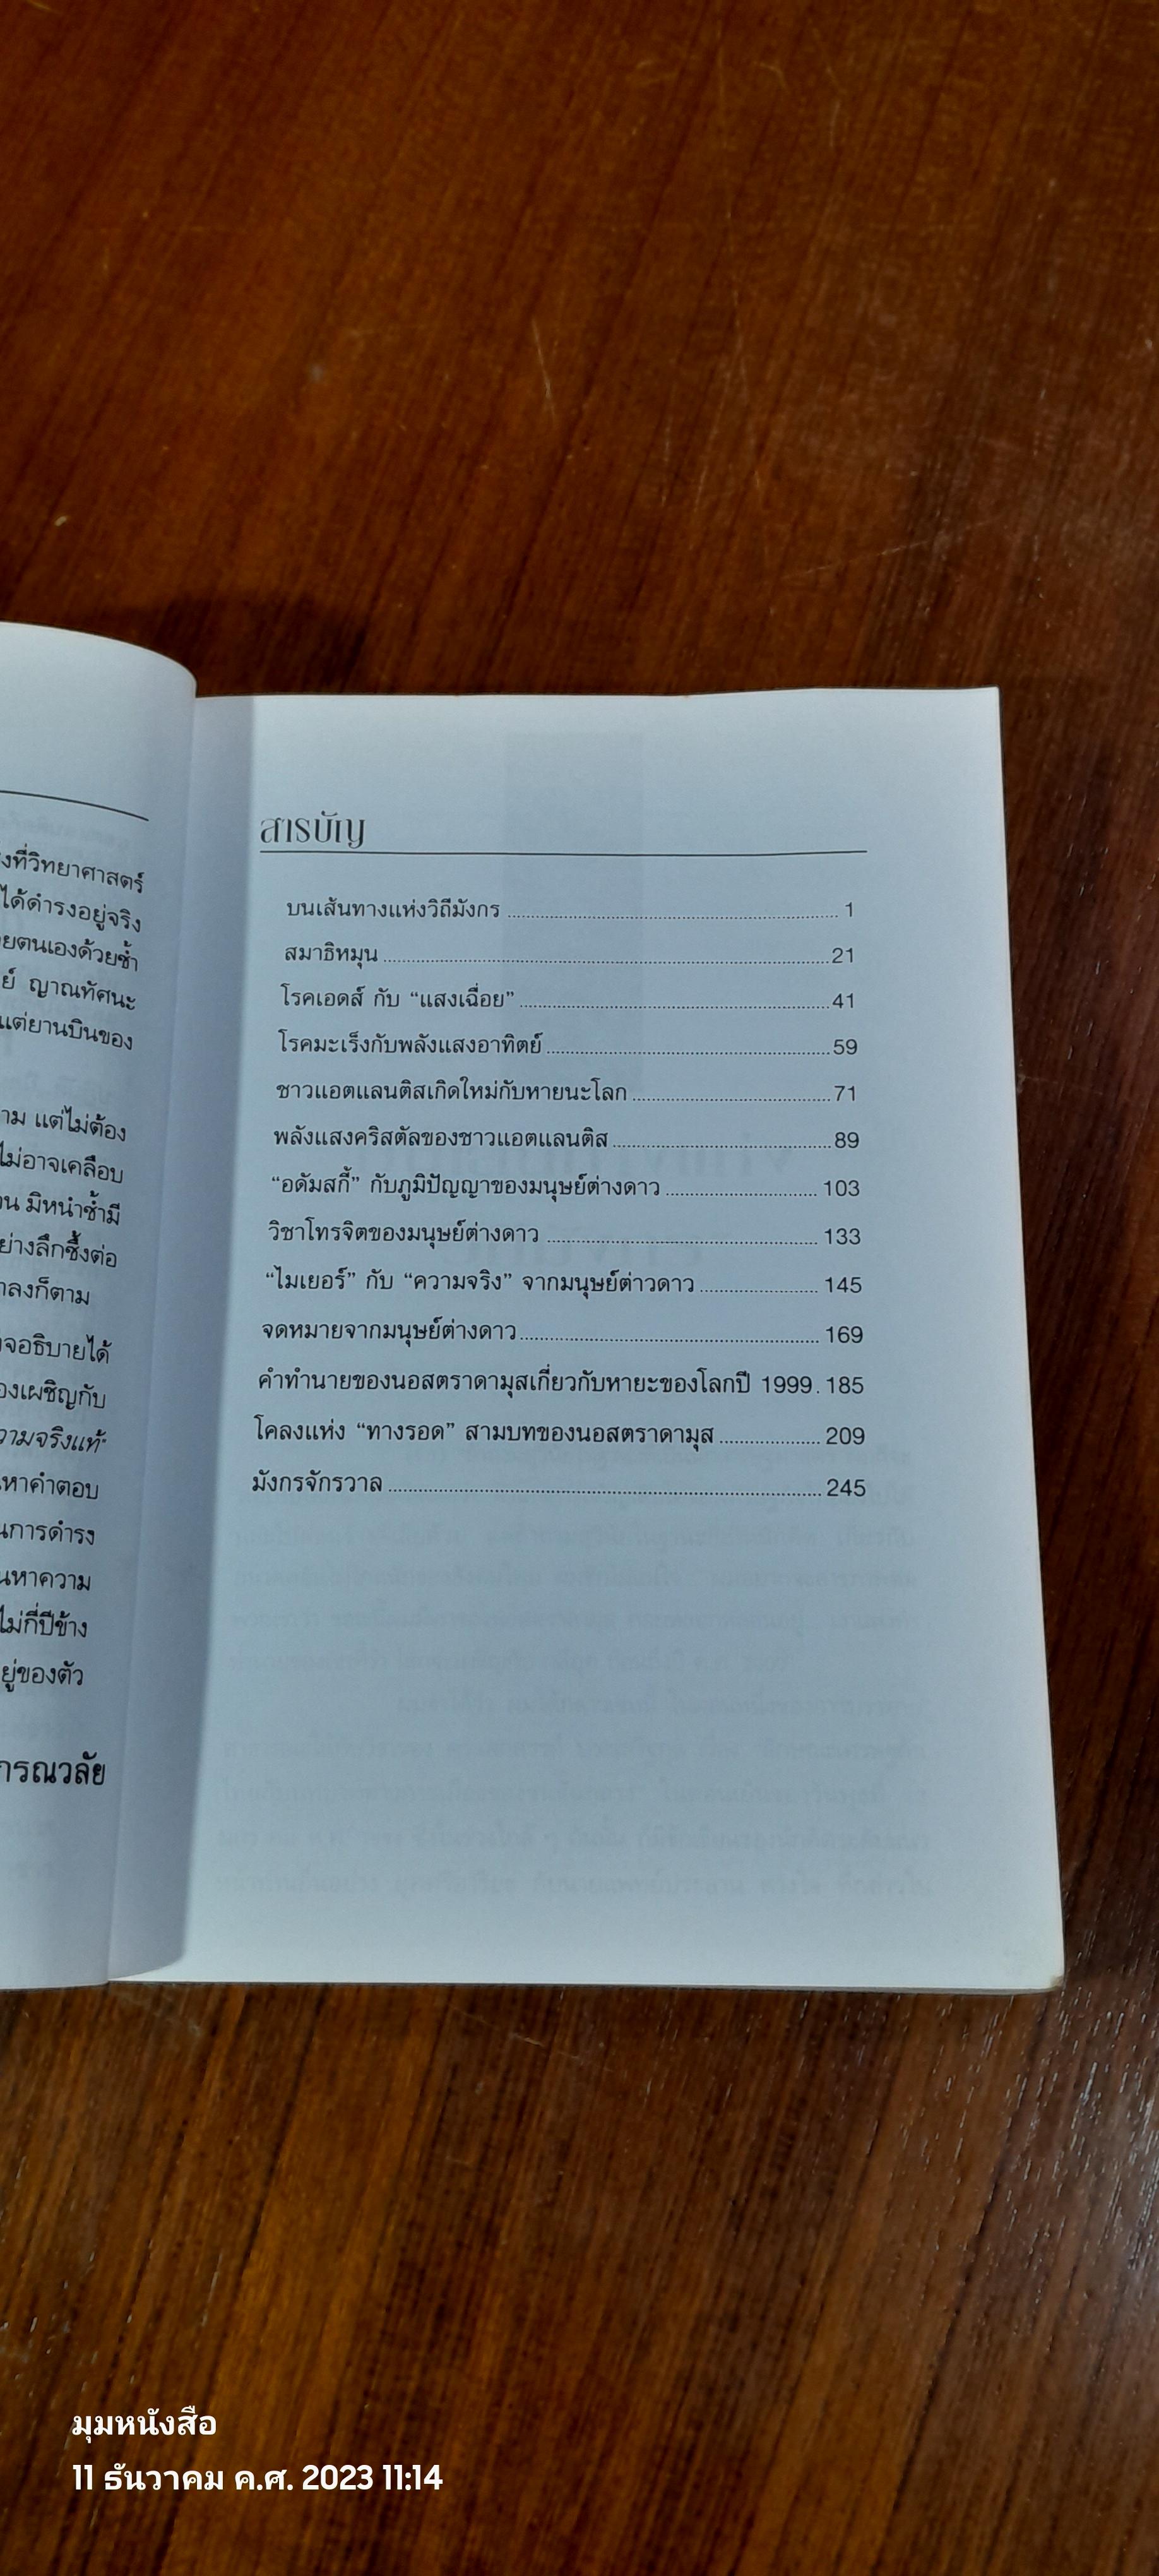 งที่วิทยาศาสตร์
ได้ดำรงอยู่จริง
ยตนเองด้วยซ้ำ
ย์ ญาณทัศนะ
แต่ยานบินของ
าม แต่ไม่ต้อง
ไม่อาจเคลือบ
วน มิหนำซ้ำมี
ย่างลึกซึ้งต่อ
าลงก็ตาม
จอธิบายได้
องเผชิญกับ
วามจริงแท้"
หาคำตอบ
นการดำรง
นหาความ
ไม่กี่ปีข้าง
ยู่ของตัว
กรณวลัย
สารบัญ
บนเส้นทางแห่งวิถีมังกร 1
สมาธิหมุน 21
โรคเอดส์ กับ “แสงเฉื่อย” 41
โรคมะเร็งกับพลังแสงอาทิตย์ 59
ชาวแอตแลนติสเกิดใหม่กับหายนะโลก 71
พลังแสงคริสตัลของชาวแอตแลนติส 89
“อดัมสกี้” กับภูมิปัญญาของมนุษย์ต่างดาว 103
วิชาโทรจิตของมนุษย์ต่างดาว 133
“ไมเยอร์” กับ “ความจริง” จากมนุษย์ต่าวดาว 145
จดหมายจากมนุษย์ต่างดาว 169
คำทำนายของนอสตราดามุสเกี่ยวกับหายะของโลกปี 1999 . 185
โคลงแห่ง “ทางรอด” สามบทของนอสตราดามุส 209
มังกรจักรวาล 245
มุมหนังสือ
11 ธันวาคม ค.ศ. 2023 11:14